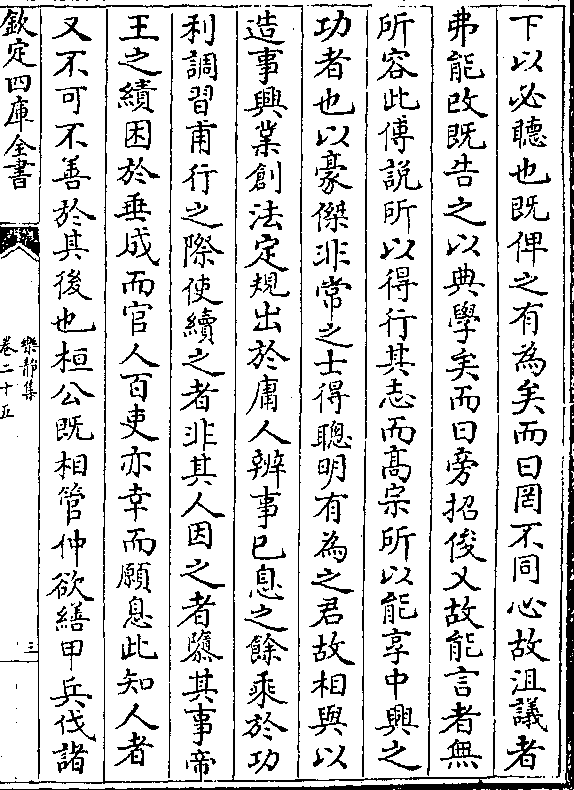 下以必聽也既俾之有為矣而曰罔不同心故沮議者
弗能改既告之以典學矣而曰旁招俊乂故能言者無
所容此傅說所以得行其志而髙宗所以能享中興之
功者也以豪傑非常之士得聰明有為之君故相與以
造事興業創法定規出於庸人辨事已息之餘乘於功
利調習甫行之際使續之者非其人因之者隳其事帝
王之績困於垂成而官人百吏亦幸而願息此知人者
又不可不善於其後也桓公既相管仲欲繕甲兵伐諸
欽定四庫全書
樂靜集
卷二十五
三